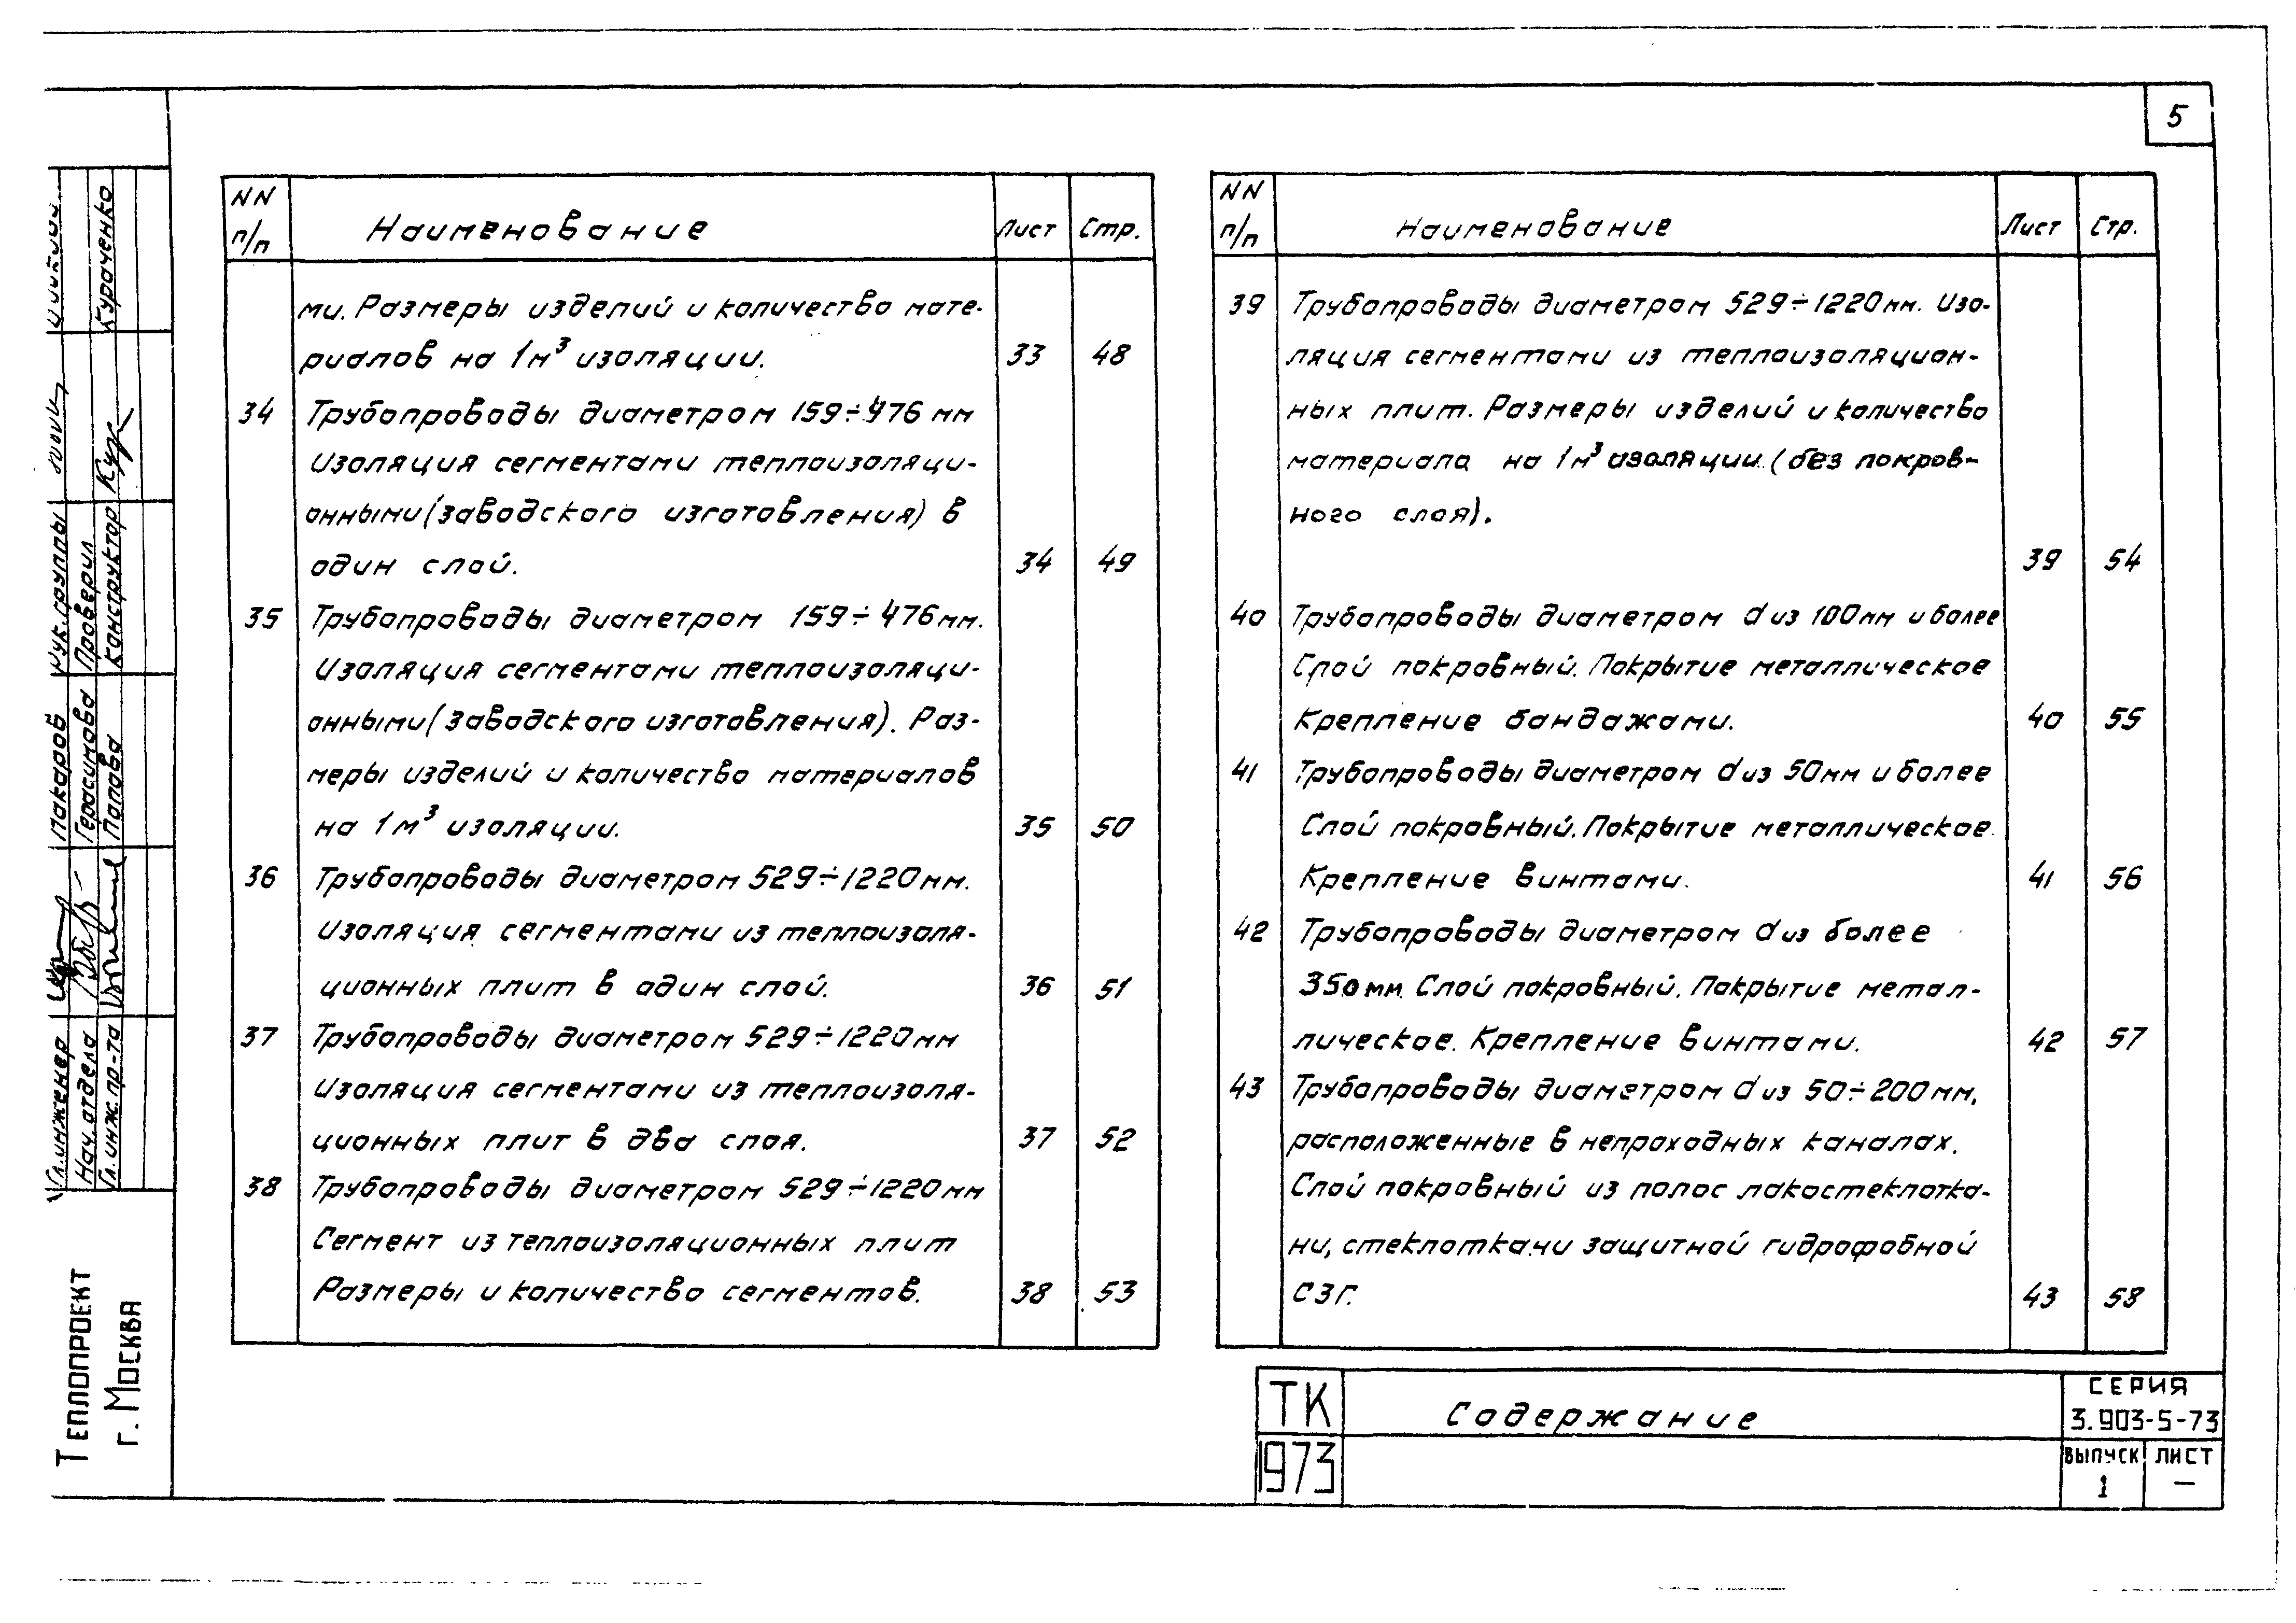 5
NN п/п Наименование Лист Стр.
ми. Размеры изделий и количество мате-
риалов на 1м³ изоляции. 33 48
34 Трубопроводы диаметром 159÷476 мм
Изоляция сегментами теплоизоляци-
онными (заводского изготовления) в
один слой. 34 49
35 Трубопроводы диаметром 159÷476мм.
Изоляция сегментами теплоизоляци-
онными (заводского изготовления). Раз-
меры изделий и количество материалов
на 1м³ изоляции. 35 50
36 Трубопроводы диаметром 529÷1220мм.
Изоляция сегментами из теплоизоля-
ционных плит в один слой. 36 51
37 Трубопроводы диаметром 529÷1220мм
Изоляция сегментами из теплоизоля-
ционных плит в два слоя. 37 52
38 Трубопроводы диаметром 529÷1220мм
Сегмент из теплоизоляционных плит
Размеры и количество сегментов. 38 53
NN п/п Наименование Лист Стр.
39 Трубопроводы диаметром 529÷1220мм. Изо-
ляция сегментами из теплоизоляцион-
ных плит. Размеры изделий и количество
материала на 1м³ изоляции. (без покров-
ного слоя).
39 54
40 Трубопроводы диаметром dиз 100мм и более
Слой покровный. Покрытие металлическое
Крепление бандажами. 40 55
41 Трубопроводы диаметром dиз 50мм и более
Слой покровный. Покрытие металлическое.
Крепление винтами. 41 56
42 Трубопроводы диаметром dиз более
350мм. Слой покровный. Покрытие метал-
лическое. Крепление винтами. 42 57
43 Трубопроводы диаметром dиз 50÷200мм,
расположенные в непроходных каналах.
Слой покровный из полос лакостеклотка-
ни, стеклоткани защитной гидрофобной
СЗГ. 43 58
ТК
1973
Содержание
СЕРИЯ
3.903-5-73
ВЫПУСК ЛИСТ
1 —
Гл. инженер Макаров Рук. группы
Нач. отдела Герасимова Проверил
Гл. инж. пр-та Попова Конструктор Кураченко
ТЕПЛОПРОЕКТ
г. МОСКВА